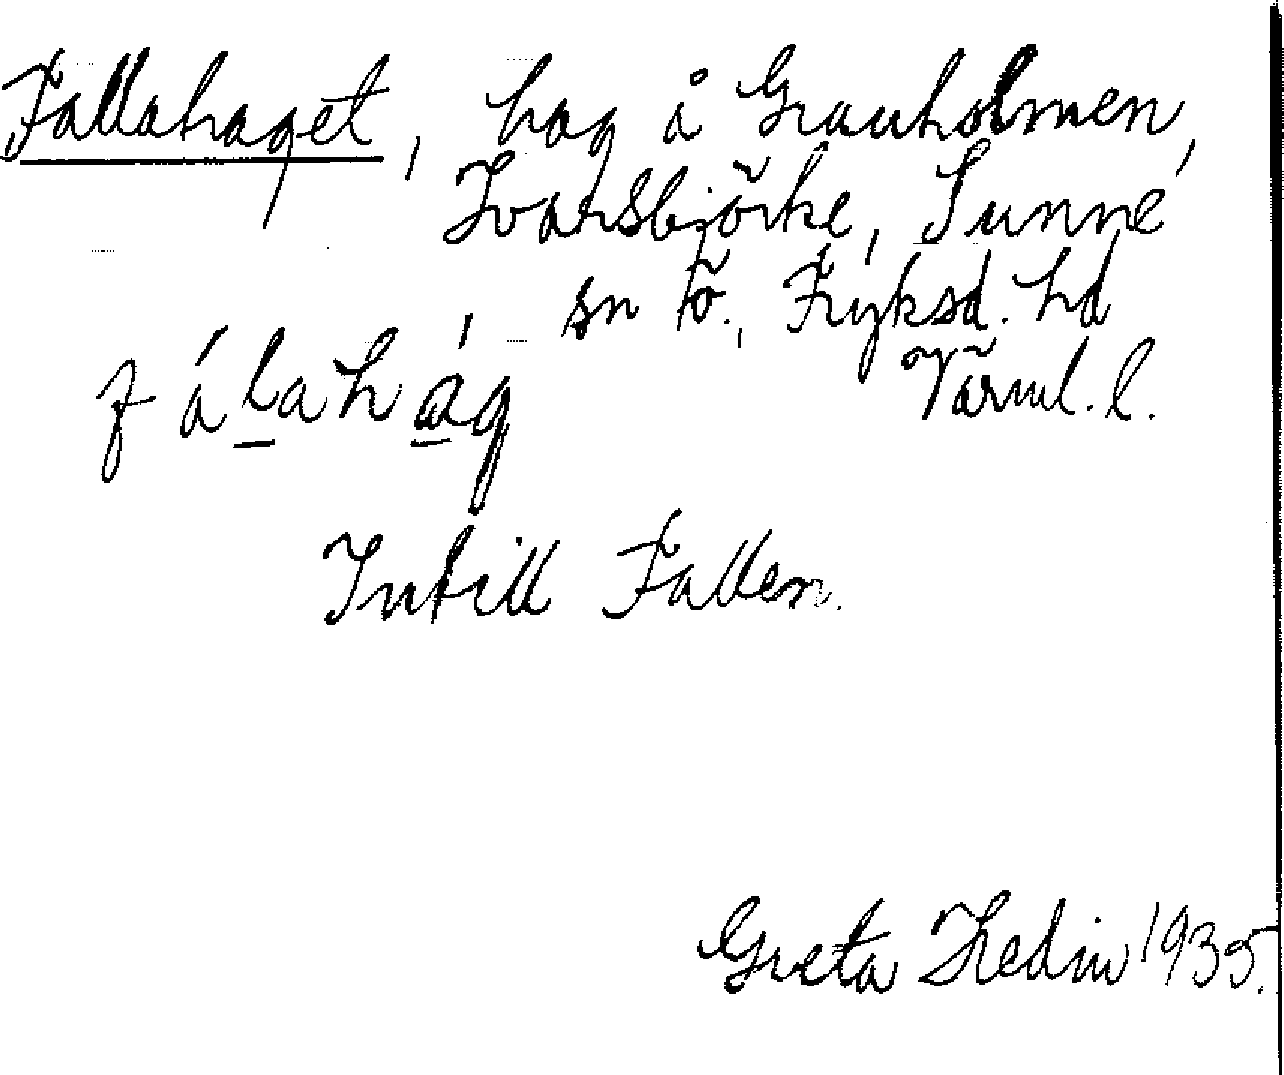 Fallahaget, hag å Grauholmen,
Ivarsbjörke, Sunne
sn tö., Fryksd. hd
Värml. l.
fálahág
Intill Fallen.
Greta Hedin 1935.